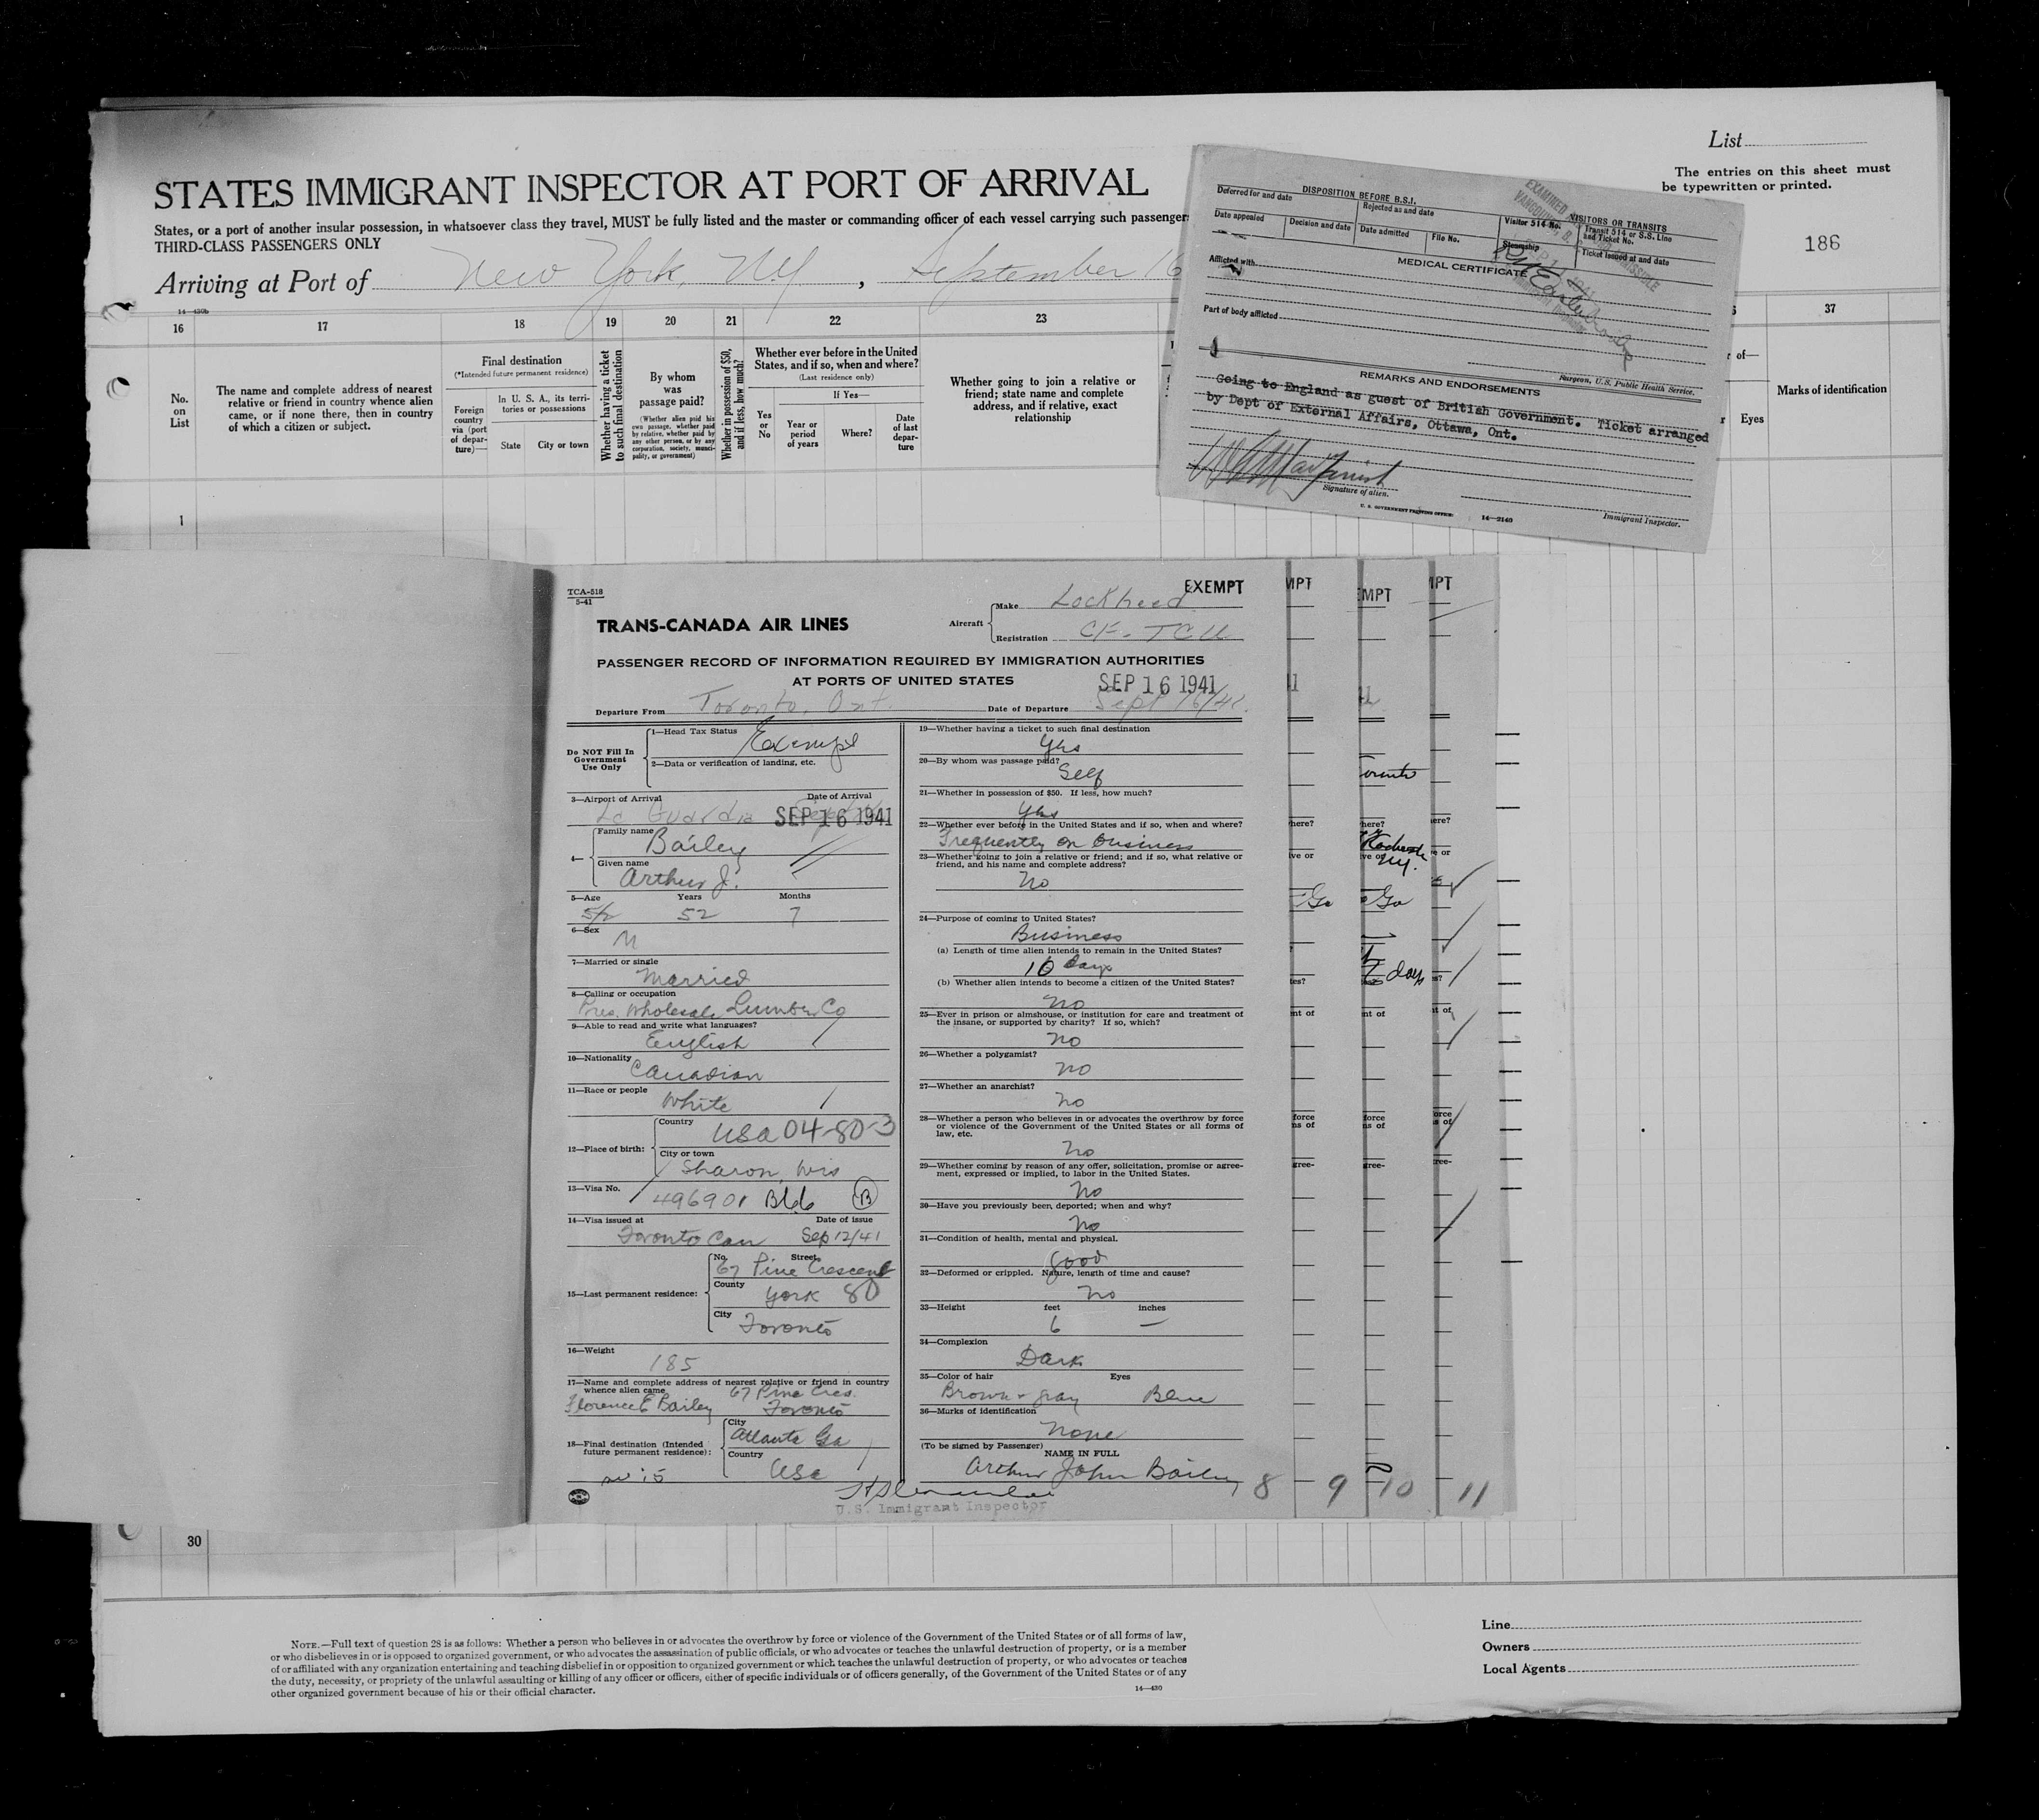 List
The entries on this sheet must
be typewritten or printed.
STATES IMMIGRANT INSPECTOR AT PORT OF ARRIVAL
States, or a port of another insular possession, in whatsoever class they travel, MUST be fully listed and the master or commanding officer of each vessel carrying such passengers
THIRD-CLASS PASSENGERS ONLY
186
Arriving at Port of New York, N.Y., September 16
14—430b
16 17 18 19 20 21 22 23 37
No. on List
The name and complete address of nearest
relative or friend in country whence alien
came, or if none there, then in country
of which a citizen or subject.
Final destination
(*Intended future permanent residence)
Foreign country via (port of departure)—
In U. S. A., its territories or possessions
State City or town
Whether having a ticket to such final destination
By whom was passage paid?
(Whether alien paid his own passage, whether paid by relative, whether paid by any other person, or by any corporation, society, municipality, or government)
Whether in possession of $50, and if less, how much?
Whether ever before in the United
States, and if so, when and where?
(Last residence only)
Yes or No
If Yes—
Year or period of years
Where?
Date of last departure
Whether going to join a relative or
friend; state name and complete
address, and if relative, exact
relationship
of—
Eyes
Marks of identification
1
30
DISPOSITION BEFORE B.S.I.
VISITORS OR TRANSITS
Deferred for and date
Rejected as and date
Visitor 514 No.
Transit 514 or S.S. Line and Ticket No.
Date appealed
Decision and date
Date admitted
File No.
Steamship
Ticket issued at and date
MEDICAL CERTIFICATE
Afflicted with
Part of body afflicted
Surgeon, U.S. Public Health Service.
REMARKS AND ENDORSEMENTS
Going to England as guest of British Government. Ticket arranged
by Dept of External Affairs, Ottawa, Ont.
Signature of alien.
U. S. GOVERNMENT PRINTING OFFICE
14—2140
Immigrant Inspector.
TCA-518
5-41
EXEMPT
TRANS-CANADA AIR LINES
Aircraft
Make Lockheed
Registration CF-TCU
PASSENGER RECORD OF INFORMATION REQUIRED BY IMMIGRATION AUTHORITIES
AT PORTS OF UNITED STATES
SEP 16 1941
Departure From Toronto, Ont. Date of Departure Sept 16/41.
Do NOT Fill In
Government
Use Only
1—Head Tax Status Exempt
2—Data or verification of landing, etc.
3—Airport of Arrival La Guardia Date of Arrival SEP 16 1941
4— Family name Bailey
Given name Arthur J.
5—Age 52 Years 52 Months 7
6—Sex M
7—Married or single Married
8—Calling or occupation Pres. Wholesale Lumber Co
9—Able to read and write what languages? English
10—Nationality Canadian
11—Race or people White
12—Place of birth: Country USA 04-80-3
City or town Sharon, Wis
13—Visa No. 496901 B
14—Visa issued at Toronto Can Date of issue Sep 12/41
15—Last permanent residence: No. Street 67 Pine Crescent
County York 80
City Toronto
16—Weight 185
17—Name and complete address of nearest relative or friend in country
whence alien came 67 Pine Cres.
Florence E Bailey Toronto
18—Final destination (Intended
future permanent residence):
City Atlanta Ga
Country USA
19—Whether having a ticket to such final destination
Yes
20—By whom was passage paid?
Self
21—Whether in possession of $50. If less, how much?
Yes
22—Whether ever before in the United States and if so, when and where?
Frequently on business
23—Whether going to join a relative or friend; and if so, what relative or
friend, and his name and complete address?
No
24—Purpose of coming to United States?
Business
(a) Length of time alien intends to remain in the United States?
10 days
(b) Whether alien intends to become a citizen of the United States?
No
25—Ever in prison or almshouse, or institution for care and treatment of
the insane, or supported by charity? If so, which?
No
26—Whether a polygamist?
No
27—Whether an anarchist?
No
28—Whether a person who believes in or advocates the overthrow by force
or violence of the Government of the United States or all forms of
law, etc.
No
29—Whether coming by reason of any offer, solicitation, promise or agree-
ment, expressed or implied, to labor in the United States.
No
30—Have you previously been deported; when and why?
No
31—Condition of health, mental and physical.
Good
32—Deformed or crippled. Nature, length of time and cause?
No
33—Height feet 6 inches —
34—Complexion
Dark
35—Color of hair Brown & gray Eyes Blue
36—Marks of identification
None
(To be signed by Passenger)
NAME IN FULL
Arthur John Bailey
U.S. Immigrant Inspector
8 9 10 11
NOTE.—Full text of question 28 is as follows: Whether a person who believes in or advocates the overthrow by force or violence of the Government of the United States or of all forms of law,
or who disbelieves in or is opposed to organized government, or who advocates the assassination of public officials, or who advocates or teaches the unlawful destruction of property, or is a member
of or affiliated with any organization entertaining and teaching disbelief in or opposition to organized government or which teaches the unlawful destruction of property, or who advocates or teaches
the duty, necessity, or propriety of the unlawful assaulting or killing of any officer or officers, either of specific individuals or of officers generally, of the Government of the United States or of any
other organized government because of his or their official character.
14—430
Line
Owners
Local Agents